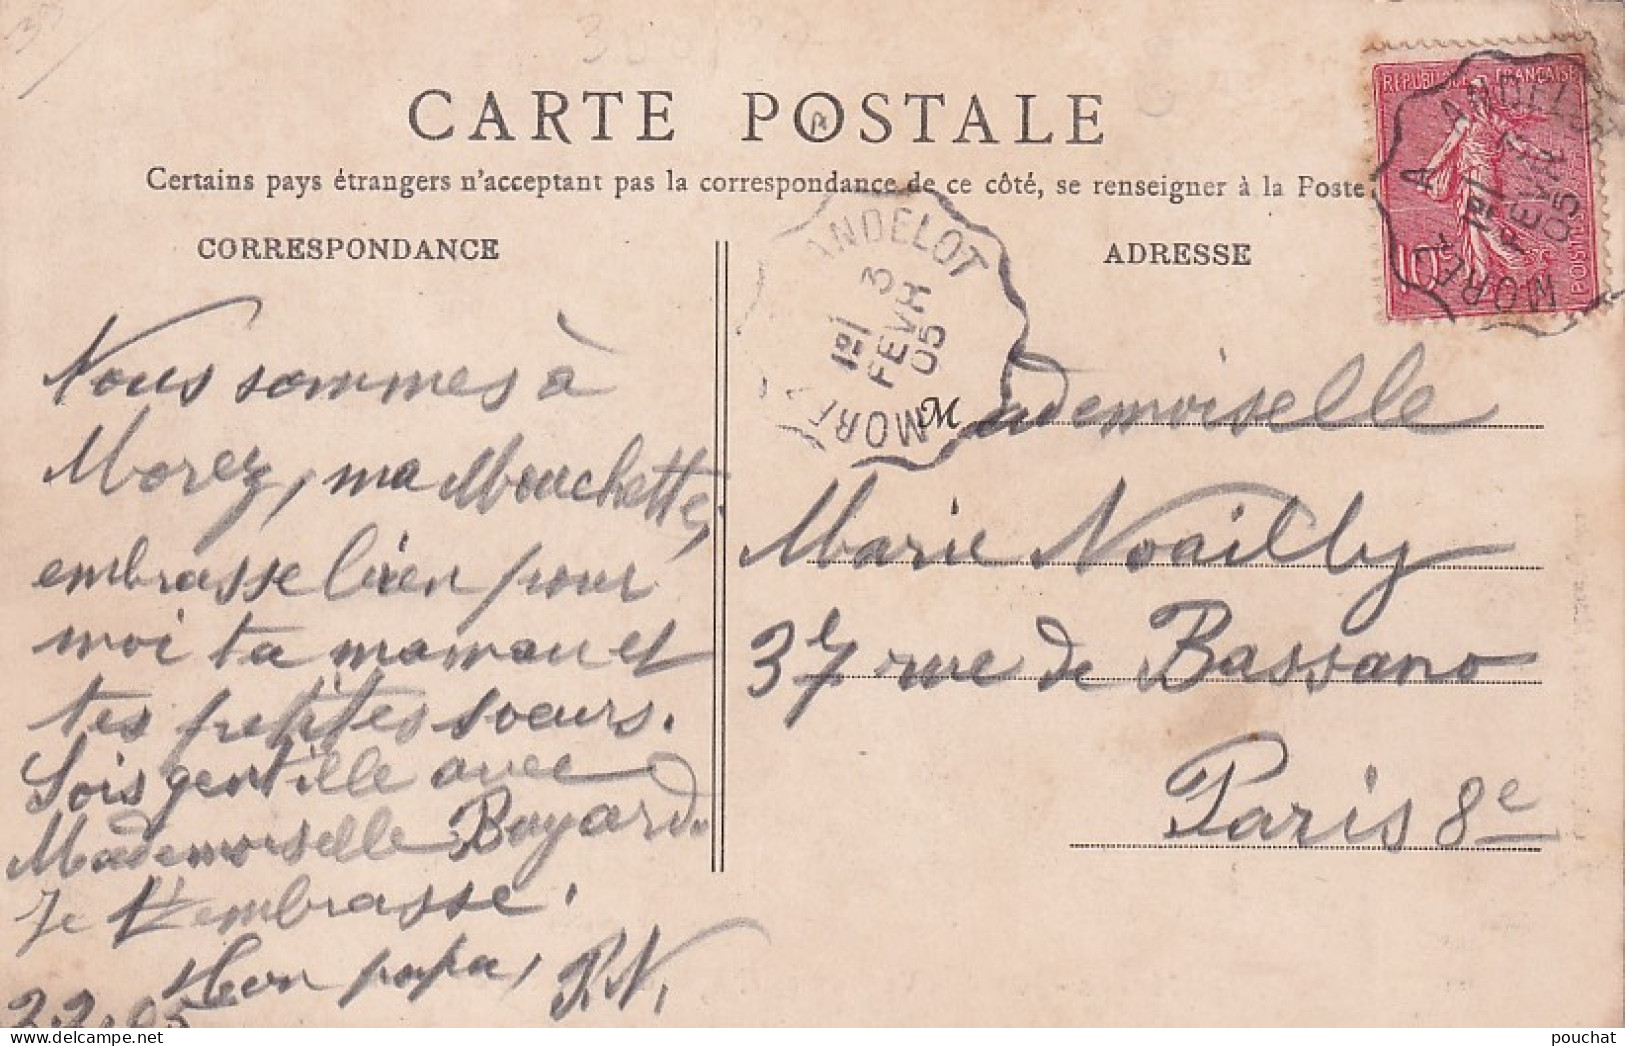 CARTE POSTALE
Certains pays étrangers n'acceptent pas la correspondance de ce côté, se renseigner à la Poste
CORRESPONDANCE
Nous sommes à
Morez, ma Mouchette,
embrasse bien pour
moi ta maman et
tes petites soeurs.
Sois gentille avec
Mademoiselle Bayard.
Je t'embrasse.
ton papa, P.N.
2.2.05
ADRESSE
Mademoiselle
Marie Noailly
37 rue de Bassano
Paris 8e
ANDELOT
1er/
3
FEVR
05
MOREZ
REPUBLIQUE FRANÇAISE
10c
POSTES
MOREZ A ANDELOT
1er/
FEVR
05
pouchat